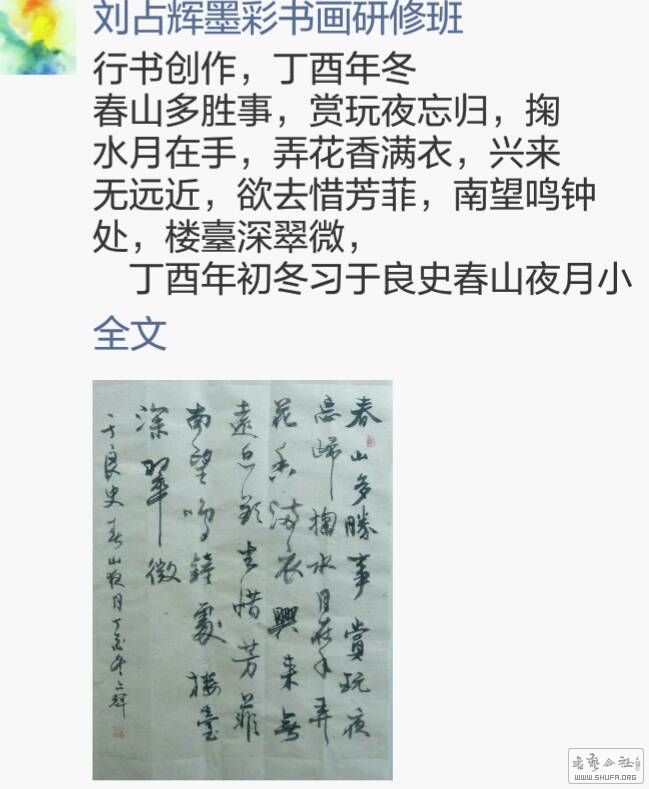 刘占辉墨彩书画研修班
行书创作，丁酉年冬
春山多胜事，赏玩夜忘归，掬
水月在手，弄花香满衣，兴来
无远近，欲去惜芳菲，南望鸣钟
处，楼臺深翠微，
丁酉年初冬习于良史春山夜月小
全文
春山多勝事賞玩夜
忘歸掬水月在手弄
花香满衣興来無
遠近欲去惜芳菲
南望鸣鐘處楼臺
深翠微
于良史春山夜月丁酉冬占辉
书艺公社
WWW.SHUFA.ORG